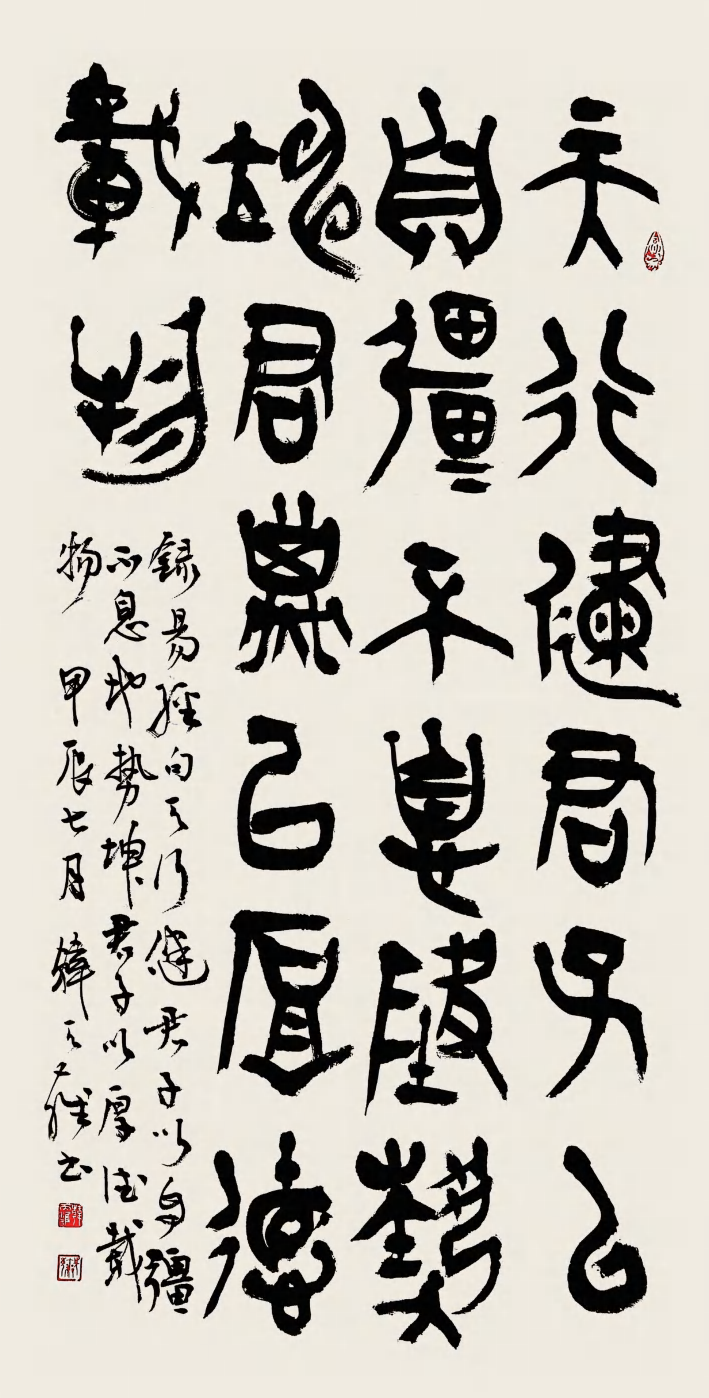 天行健君子以
自彊不息地勢
坤君子以厚德
載物
錄易經句天行健君子以自彊
不息地勢坤君子以厚德載
物 甲辰七月 韓天雍書